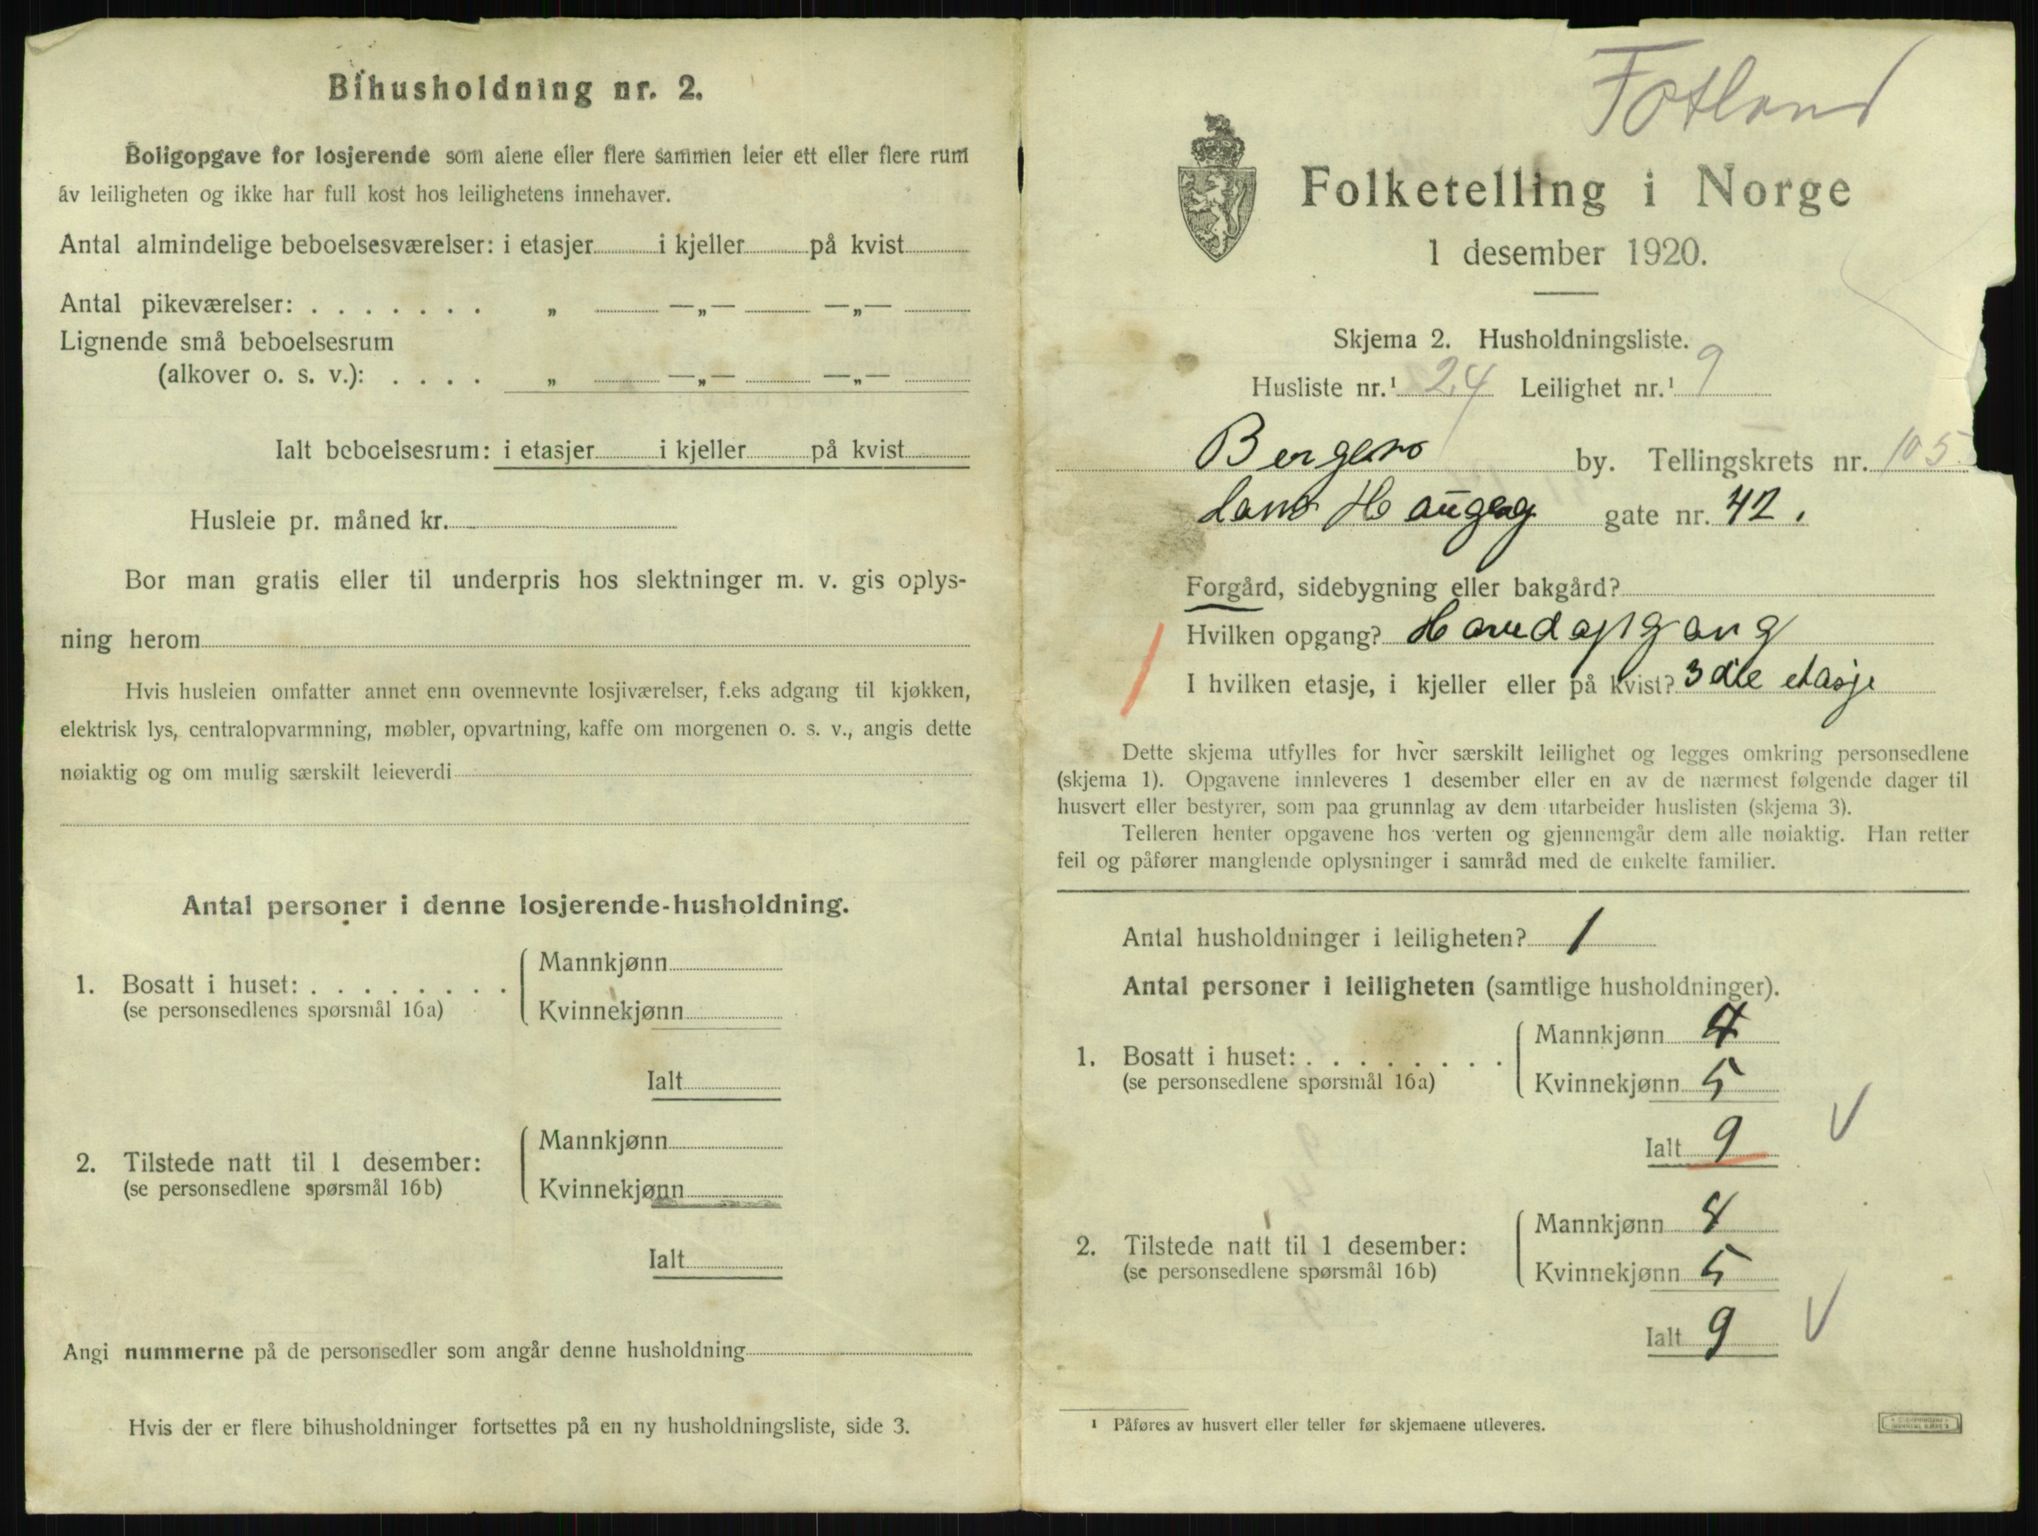 Bihusholdning nr. 2.
Boligopgave for losjerende som alene eller flere sammen leier ett eller flere rum
av leiligheten og ikke har full kost hos leilighetens innehaver.
Antal almindelige beboelsesværelser: i etasjer i kjeller på kvist
Antal pikeværelser: . . . . . . . „ —„— —„—
Lignende små beboelsesrum
(alkover o. s. v.): . . . . „ —„— —„—
Ialt beboelsesrum: i etasjer i kjeller på kvist
Husleie pr. måned kr.
Bor man gratis eller til underpris hos slektninger m. v. gis oplys-
ning herom
Hvis husleien omfatter annet enn ovennevnte losjiværelser, f.eks adgang til kjøkken,
elektrisk lys, centralopvarmning, møbler, opvartning, kaffe om morgenen o. s. v., angis dette
nøiaktig og om mulig særskilt leieverdi
Antal personer i denne losjerende-husholdning.
1. Bosatt i huset: . . . . . . . .
(se personsedlenes spørsmål 16a)
Mannkjønn
Kvinnekjønn
Ialt
2. Tilstede natt til 1 desember:
(se personsedlene spørsmål 16b)
Mannkjønn
Kvinnekjønn
Ialt
Angi nummerne på de personsedler som angår denne husholdning
Hvis der er flere bihusholdninger fortsettes på en ny husholdningsliste, side 3.
Fotland
Folketelling i Norge
1 desember 1920.
Skjema 2. Husholdningsliste.
Husliste nr.¹ 24 Leilighet nr.¹ 9
Bergen by. Tellingskrets nr. 105
Haugeg gate nr. 42.
Forgård, sidebygning eller bakgård?
Hvilken opgang? Hovedopgang
I hvilken etasje, i kjeller eller på kvist? 3die etasje
Dette skjema utfylles for hver særskilt leilighet og legges omkring personsedlene
(skjema 1). Opgavene innleveres 1 desember eller en av de nærmest følgende dager til
husvert eller bestyrer, som paa grunnlag av dem utarbeider huslisten (skjema 3).
Telleren henter opgavene hos verten og gjennemgår dem alle nøiaktig. Han retter
feil og påfører manglende oplysninger i samråd med de enkelte familier.
Antal husholdninger i leiligheten? 1
Antal personer i leiligheten (samtlige husholdninger).
1. Bosatt i huset: . . . . . . . .
(se personsedlene spørsmål 16a)
Mannkjønn 4
Kvinnekjønn 5
Ialt 9
2. Tilstede natt til 1 desember:
(se personsedlene spørsmål 16b)
Mannkjønn 4
Kvinnekjønn 5
Ialt 9
¹ Påføres av husvert eller teller før skjemaene utleveres.